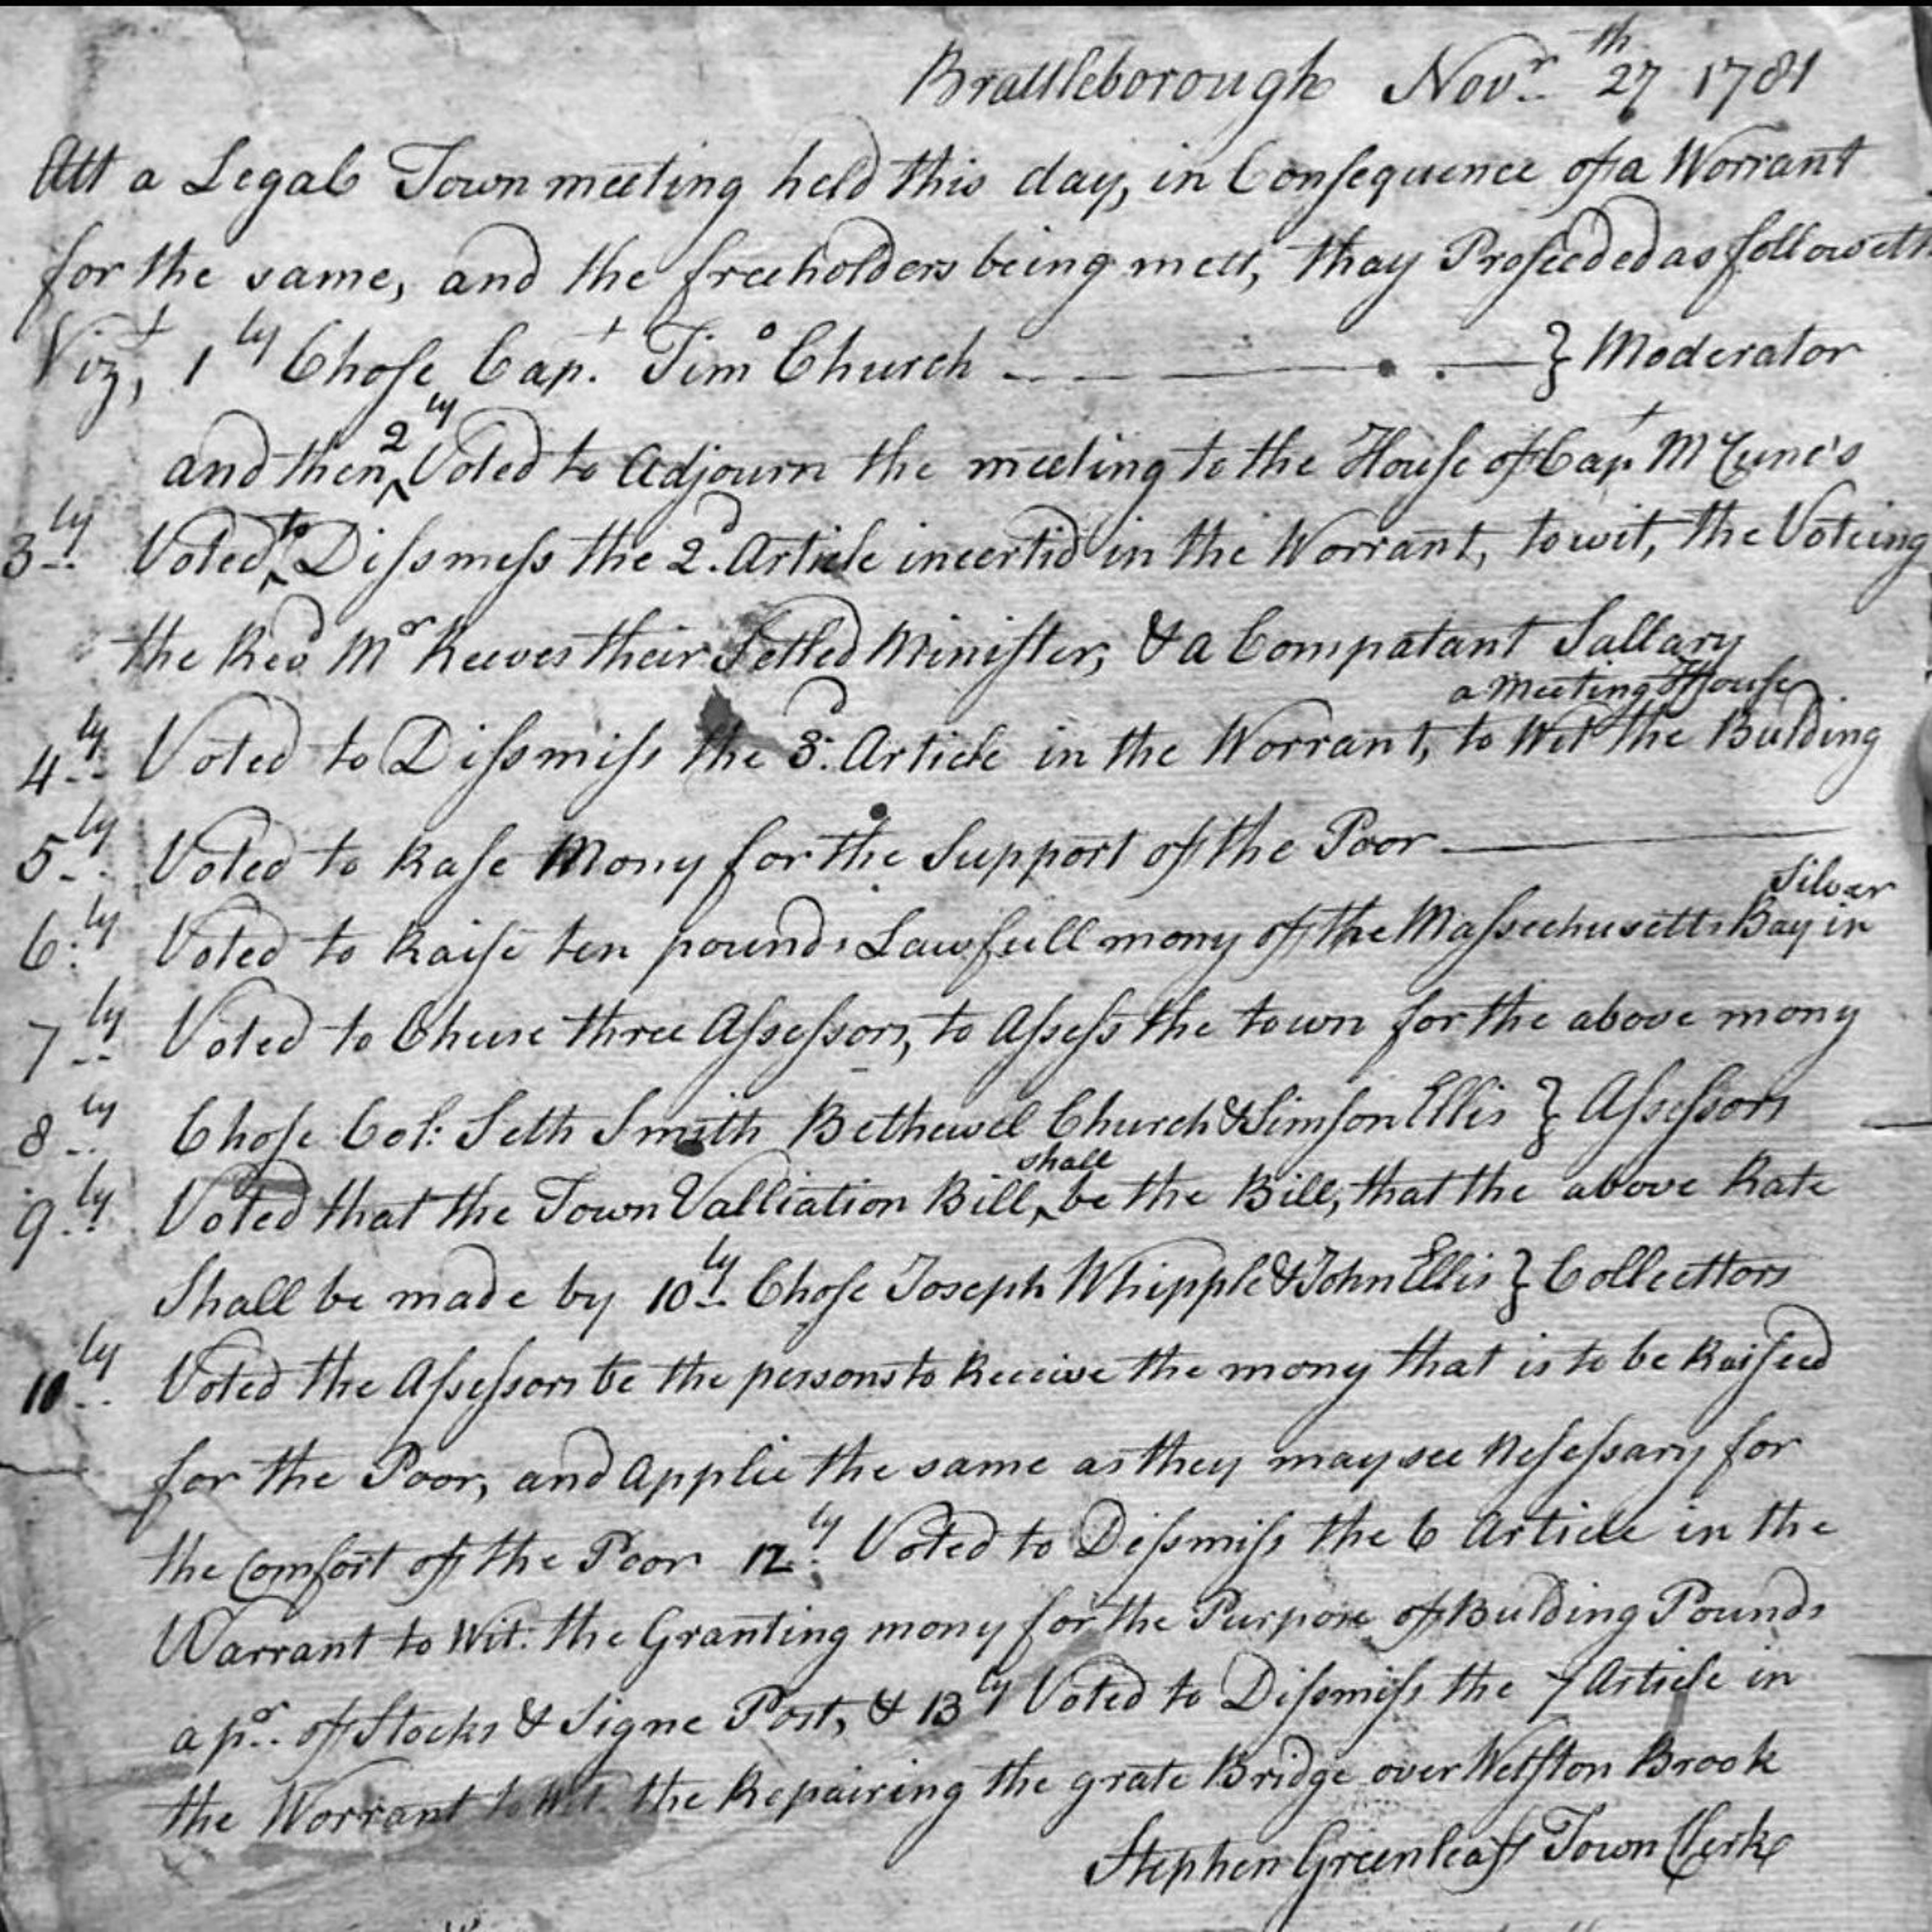 Brattleborough Novr. 27th 1781
Att a Legal Town meeting held this day, in Consequence of a Worrant
for the same, and the freeholders being mett, thay Proseeded as followeth
Vizt, 1ly Chose Capt. Timo Church } Moderator
and then 2ly Voted to Adjourn the meeting to the House of Capt McCune's
3ly Voted to Dissmess the 2d. Article incertid in the Worrant, to wit, the Voteing
the Revd Mr Reeves their Setled Minister, & a Compatant Sallary
a Meeting House
4ly Voted to Dissmiss the 3d. Article in the Worrant, to Wit the Bulding
5ly Voted to Rase Mony for the Support of the Poor
Silver
6ly Voted to Raise ten pounds Lawfull mony of the Massechusetts Bay in
7ly Voted to Chuse three Assessors, to Assess the town for the above mony
8ly Chose Col: Seth Smith Bethewel Church & Simson Ellis } Assessors
9ly Voted that the Town Valliation Bill, shall be the Bill, that the above Rate
Shall be made by 10ly Chose Joseph Whipple & John Ellis } Collecttors
10ly Voted the Assessors be the persons to Receive the mony that is to be Raiseed
for the Poor, and Applie the same as they may see Nesessary for
the Comfort of the Poor 12ly Voted to Dissmiss the 6 Article in the
Warrant to Wit. the Granting mony for the Purpose of Bulding Pounds
a pr. of Stocks & Signe Post, & 13ly Voted to Dissmiss the 7 Article in
the Worrant to Wit. the Repairing the grate Bridge over Wetston Brook
Stephen Greenleaf Town Clerk